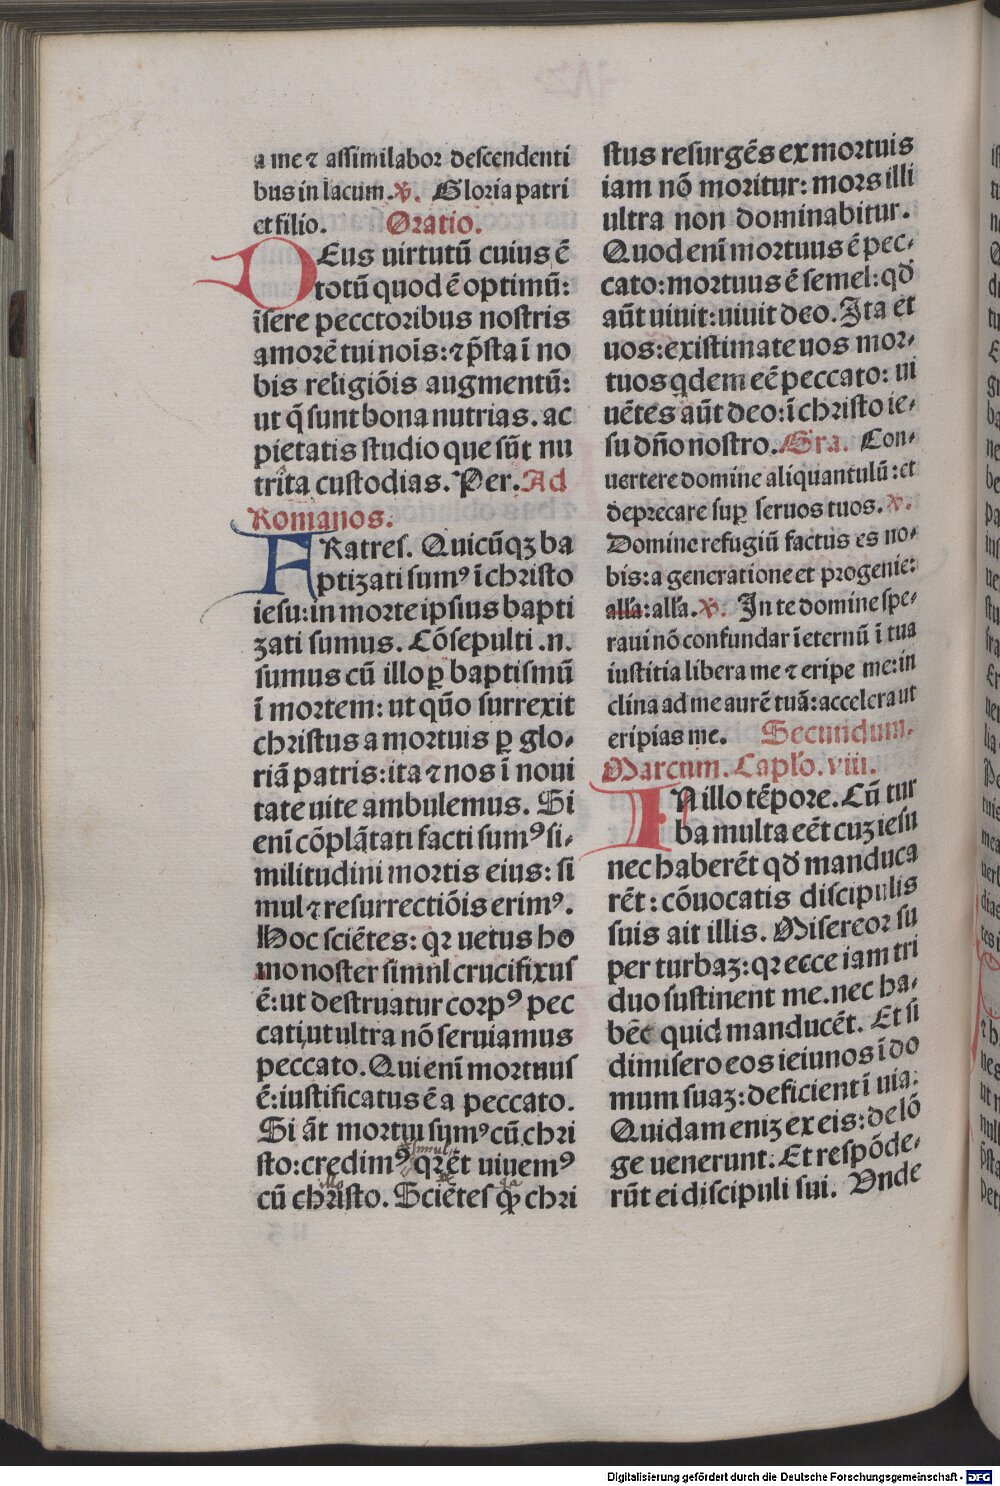 a me ⁊ assimilabor descendenti
bus in lacum. ℣. Gloria patri
et filio. Oratio.
DEus uirtutũ cuius ẽ
totũ quod ẽ optimũ:
ĩsere pecctoribus nostris
amorẽ tui noĩs: ⁊ p̃sta ĩ no
bis religiõis augmentũ:
ut q̃ sunt bona nutrias. ac
pietatis studio que sũt nu
trita custodias. Per. Ad
Romanos.
FRatres. Quicũqꝫ ba
ptizati sumꝰ ĩ christo
iesu: in morte ipsius bapti
zati sumus. Cõsepulti .n.
sumus cũ illo ꝑ baptismũ
ĩ mortem: ut quõ surrexit
christus a mortuis ꝑ glo-
riã patris: ita ⁊ nos ĩ noui
tate uite ambulemus. Si
enĩ cõplãtati facti sumꝰ si-
militudini mortis eius: si
mul ⁊ resurrectiõis erimꝰ.
Hoc sciẽtes: qꝛ uetus ho
mo noster simnl crucifixus
ẽ: ut destruatur corpꝰ pec
cati, ut ultra nõ seruiamus
peccato. Qui enĩ mortuus
ẽ: iustificatus ẽ a peccato.
Si aũt mortui sumꝰ cũ chri
sto: credimꝰ simul qꝛ et uiuemꝰ
cũ christo. Sciẽtes qꝙ chri
stus resurgẽs ex mortuis
iam nõ moritur: mors illi
ultra non dominabitur.
Quod enĩ mortuus ẽ pec-
cato: mortuus ẽ semel: qð
aũt uiuit: uiuit deo. Ita et
uos: existimate uos mor-
tuos qdem eẽ peccato: ui
uẽtes aũt deo: ĩ christo ie-
su dño nostro. Gra. Con-
uertere domine aliquantulũ: et
deprecare suꝑ seruos tuos. ℣.
Domine refugiũ factus es no-
bis: a generatione et progenie:
alľa: alľa. ℣. In te domine spe-
raui nõ confundar ĩ eternũ ĩ tua
iustitia libera me ⁊ eripe me: in
clina ad me aurẽ tuã: accelera ut
eripias me. Secundum.
Marcum. Caplo. viii.
IN illo tẽpore. Cũ tur
ba multa eẽt cuꝫ iesu
nec haberẽt qð manduca
rẽt: cõuocatis discipulis
suis ait illis. Misereor su
per turbaꝫ: qꝛ ecce iam tri
duo sustinent me. nec ha-
bẽt quid manducẽt. Et si
dimisero eos ieiunos ĩ do
mum suaꝫ: deficient ĩ uia.
Quidam eniꝫ ex eis: de lõ
ge uenerunt. Et respõde-
rũt ei discipuli sui. Vnde
Digitalisierung gefördert durch die Deutsche Forschungsgemeinschaft - DFG